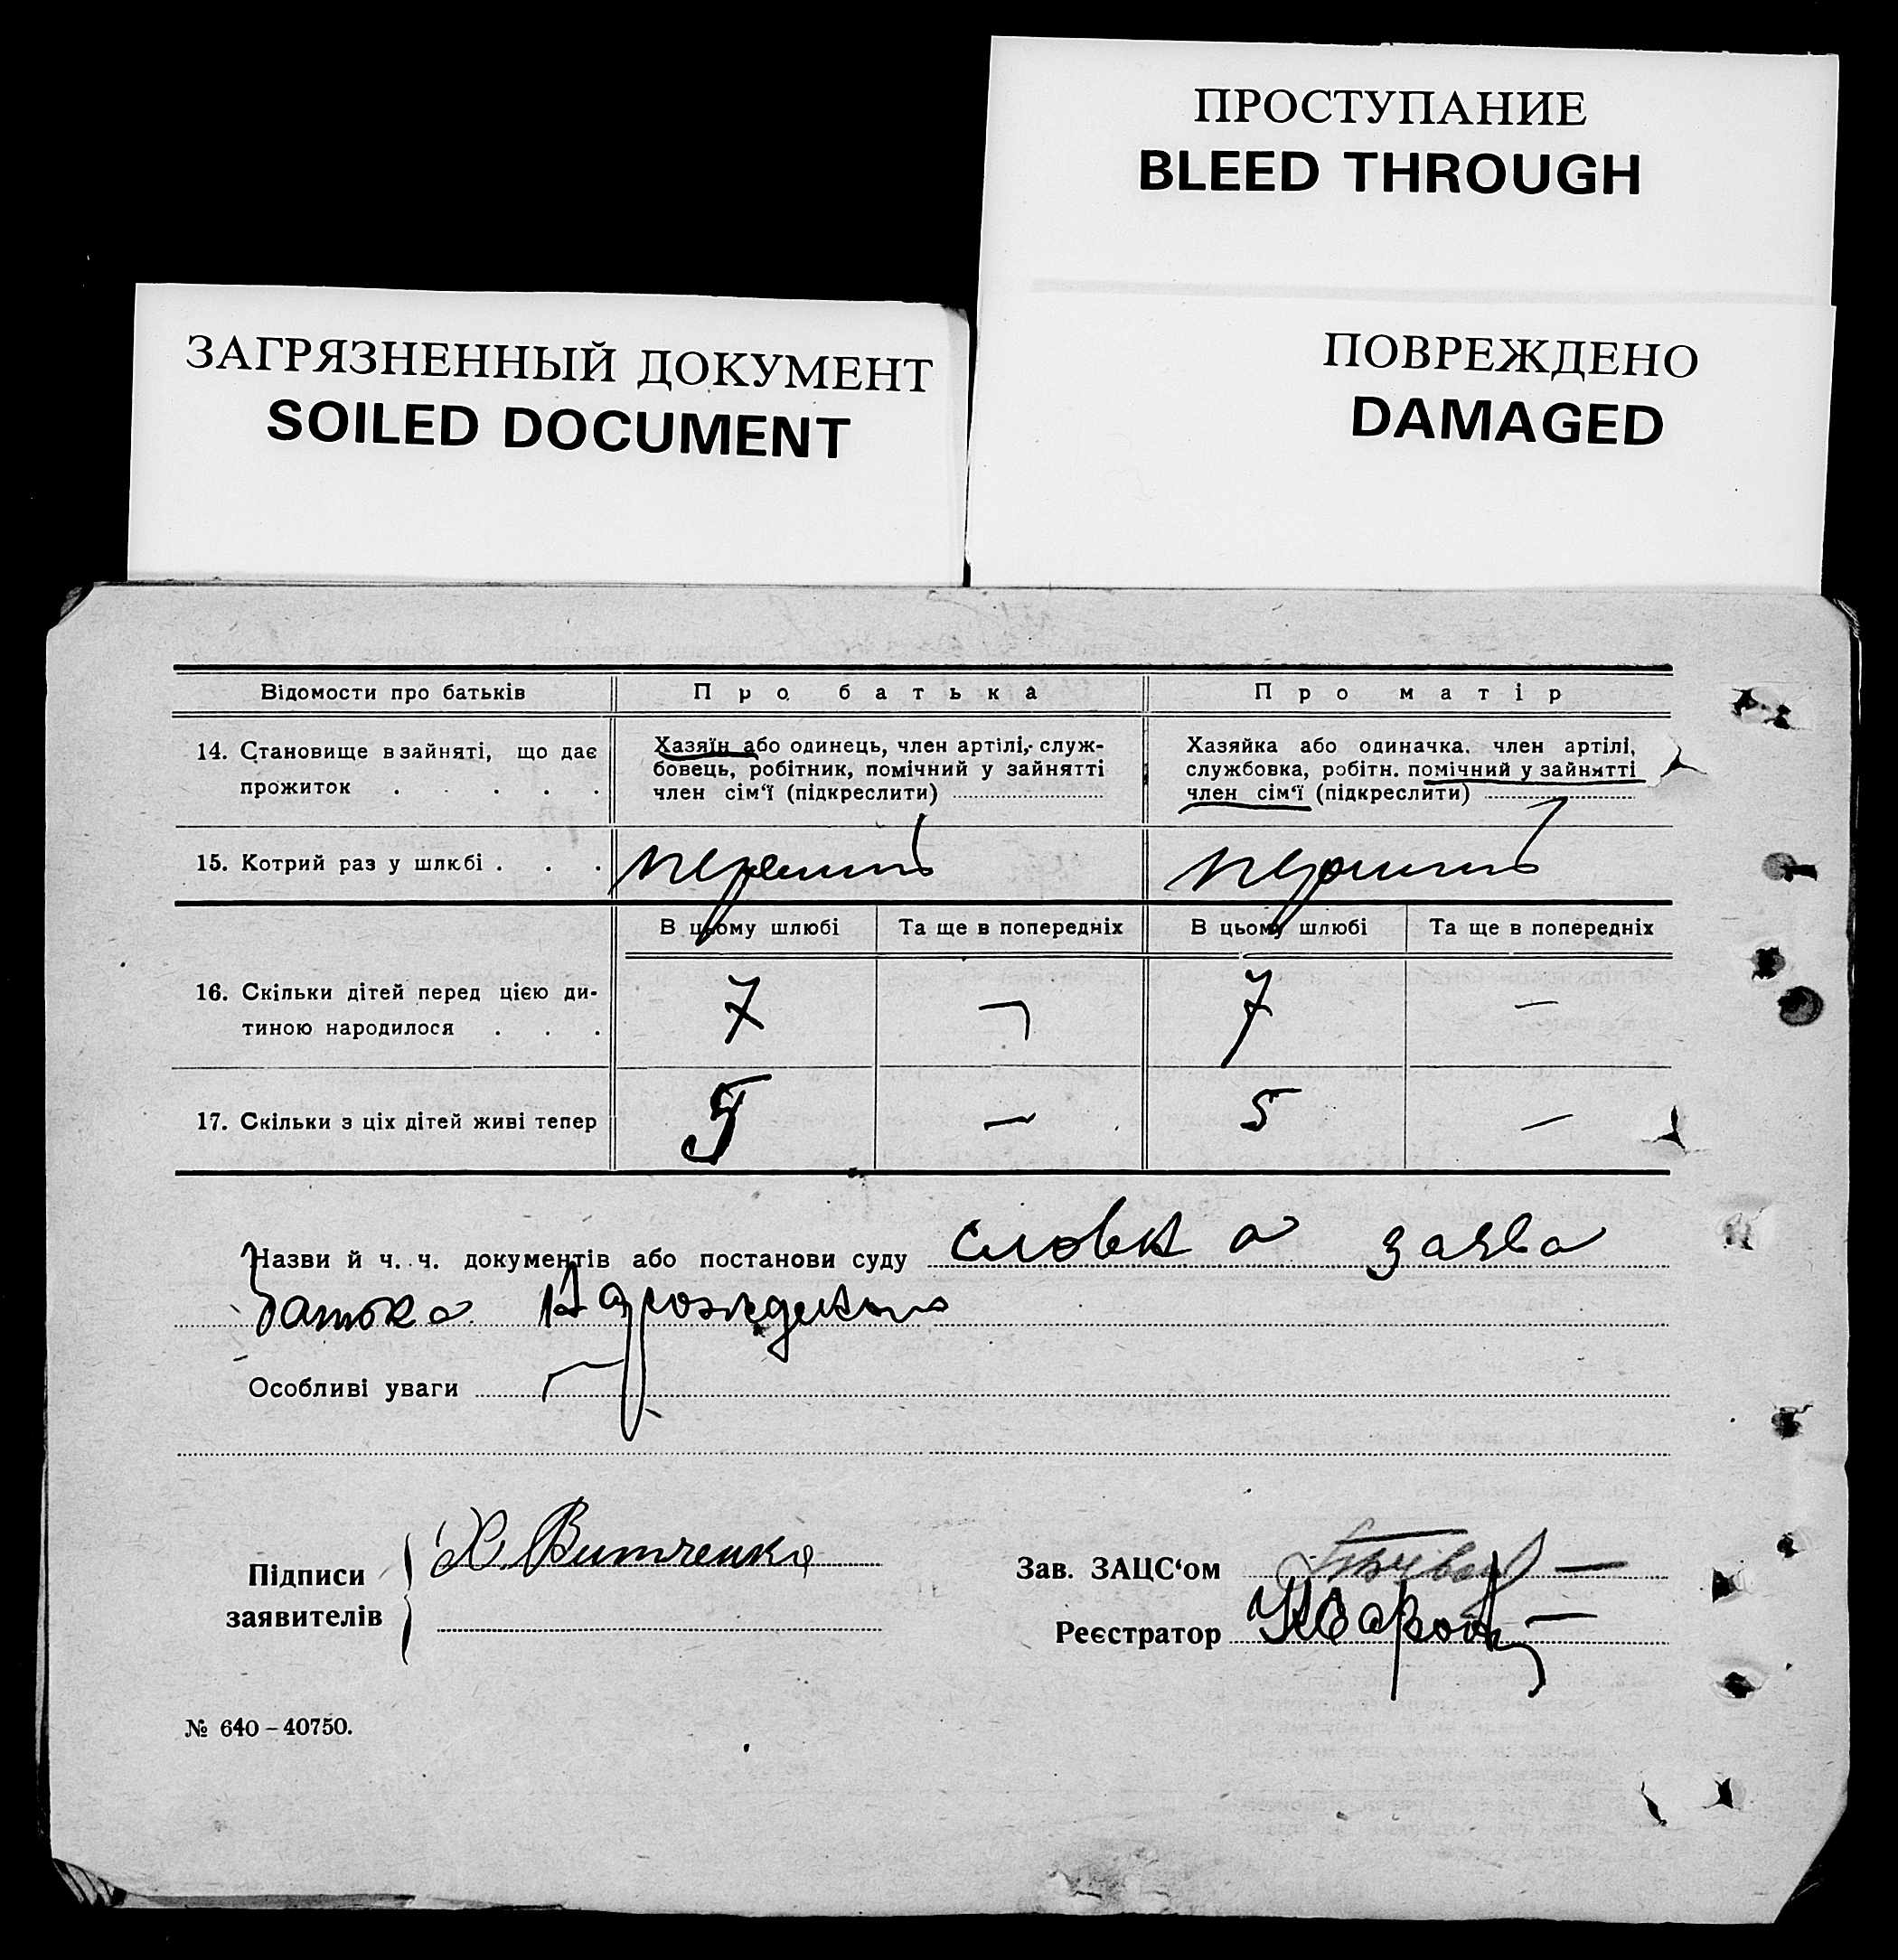 ПРОСТУПАНИЕ
BLEED THROUGH
ЗАГРЯЗНЕННЫЙ ДОКУМЕНТ
SOILED DOCUMENT
ПОВРЕЖДЕНО
DAMAGED
Відомости про батьків Про батька Про матір
14. Становище в зайняті, що дає прожиток . . . . .
Хазяїн або одинець, член артілі, служ-
бовець, робітник, помічний у зайнятті
член сім‘ї (підкреслити)
Хазяйка або одиначка. член артілі,
службовка, робітн. помічний у зайнятті
член сім‘ї (підкреслити)
15. Котрий раз у шлюбі . . . перший перший
В цьому шлюбі Та ще в попередніх В цьому шлюбі Та ще в попередніх
16. Скільки дітей перед цією ди-
тиною народилося . . . 7 — 7 —
17. Скільки з ціх дітей живі тепер 5 — 5 —
Назви й ч. ч. документів або постанови суду словна заява
батька
Особливі уваги —
Підписи
заявителів
Х. Витченко
Зав. ЗАЦС‘ом
Реєстратор
№ 640–40750.